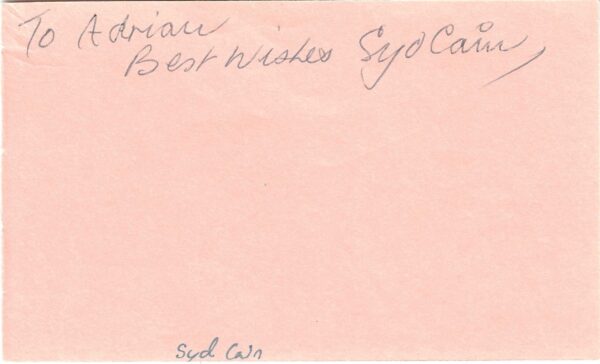 To Adrian
Best Wishes Syd Cain
Syd Cain